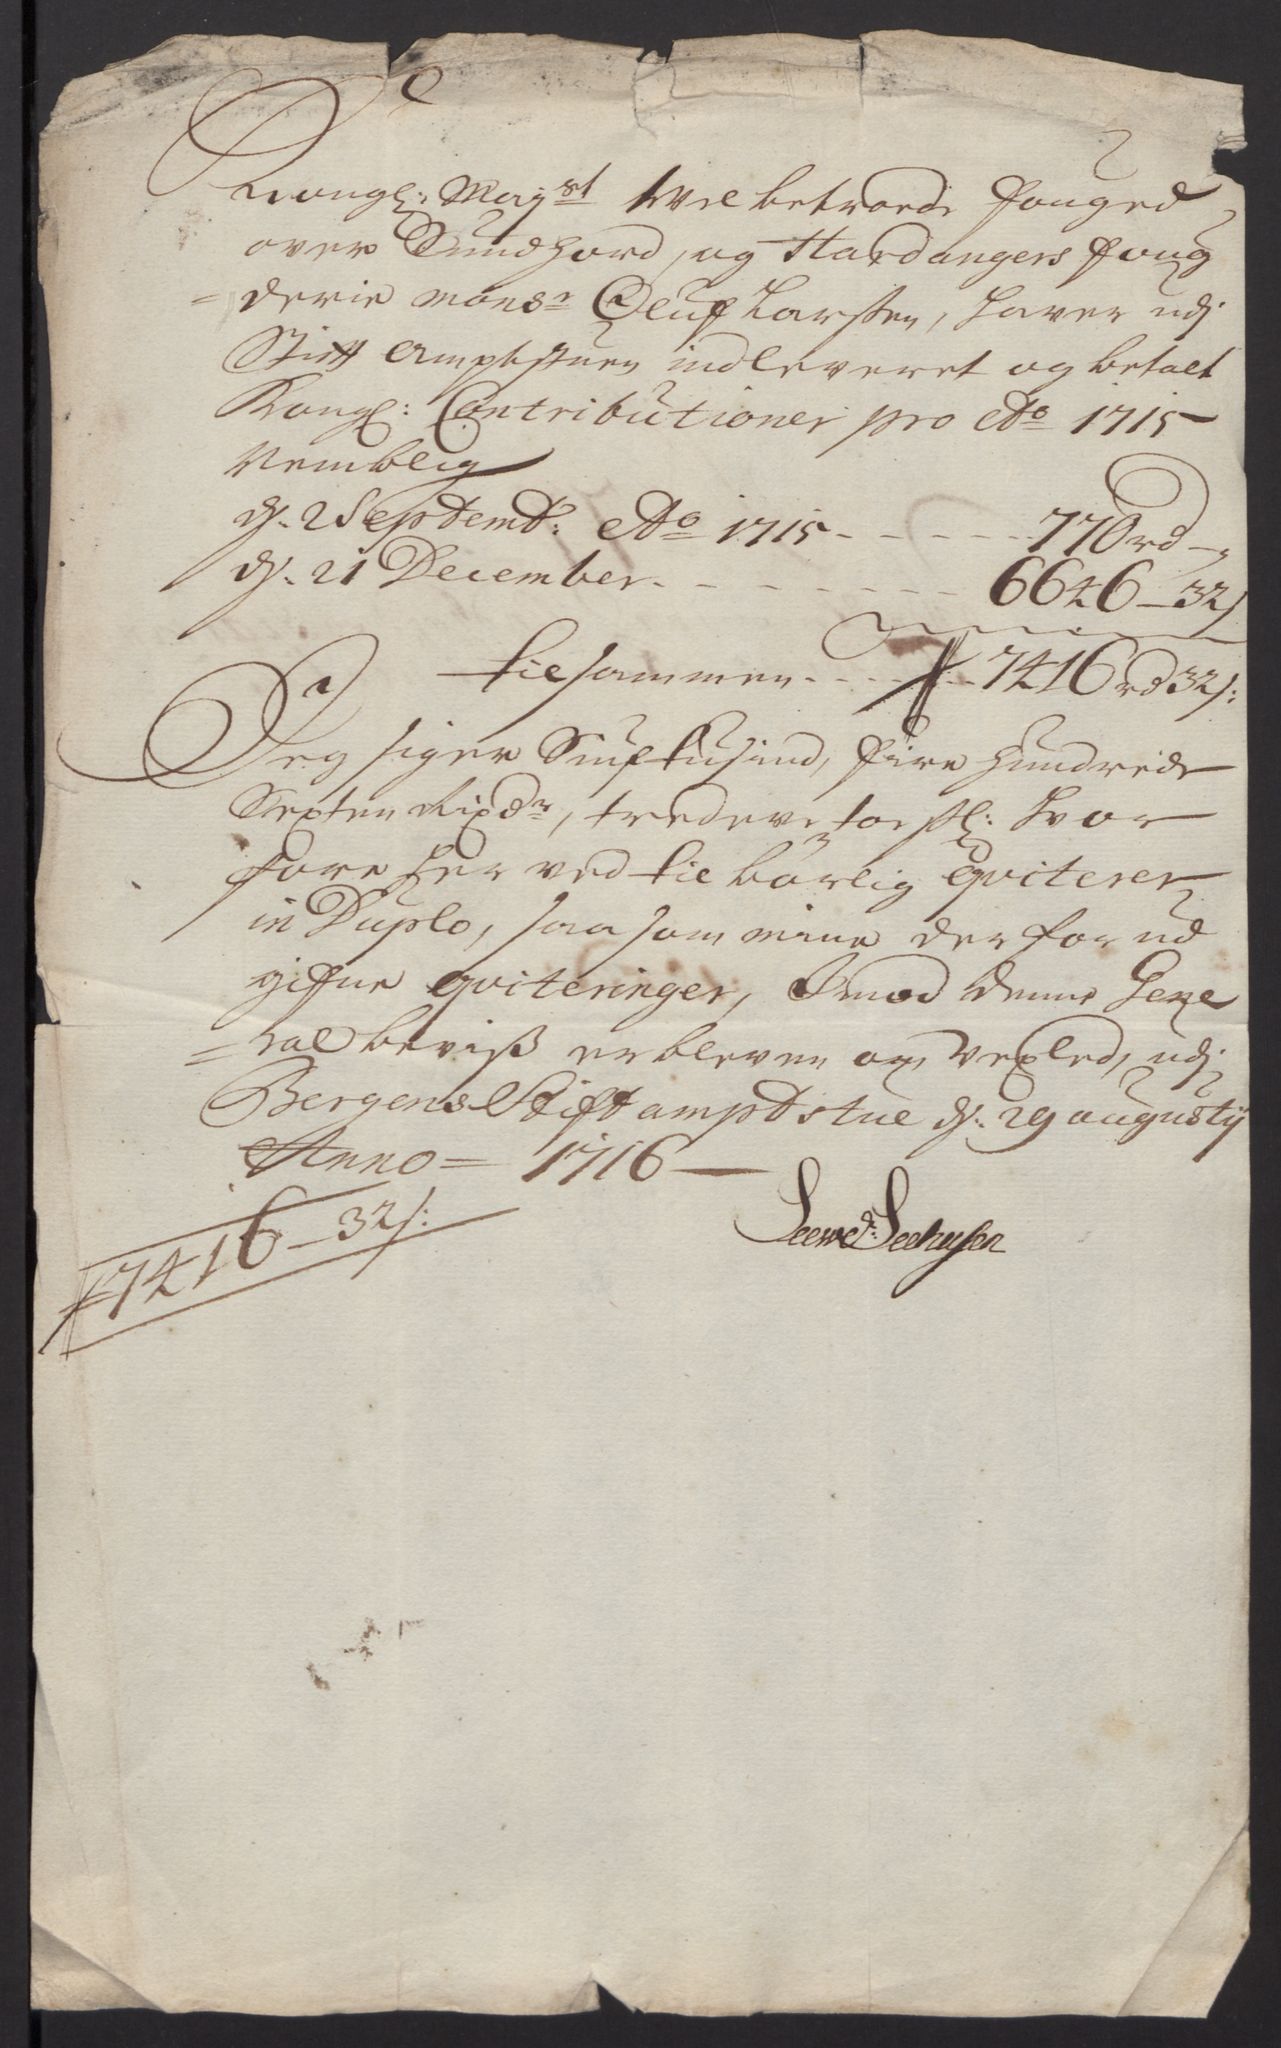 Kongl: Mayst Wel betroede fouged
over Sundhord, og Hardangers foug
=derie monsr Oluf Larsen, haver udj
Stift Amptstuen indleveret og betalt
Kongl: Contributioner pro Ao 1715
Nemblig
d. 2 Septemb: Ao 1715 - - - - - - 770 rd -
d. 21 December - - - - - - - 6646 - 32 s
tilsammen - - - - - 7416 rd 32 s:
Jeg siger Siuftusind, fire hundrede
Sexten Rixdr, tredeve toe sk: hvor
fore her ved tilbørlig qviterer
in Duplo, saa som mine der for ud
gifne qviteringer, Imod denne Gene
=ral beviiß er bleven om Vexled, udj
Bergens Stiftamptstue d. 29 augustij
Anno = 1716 —
7416 - 32 s:
Seehusen